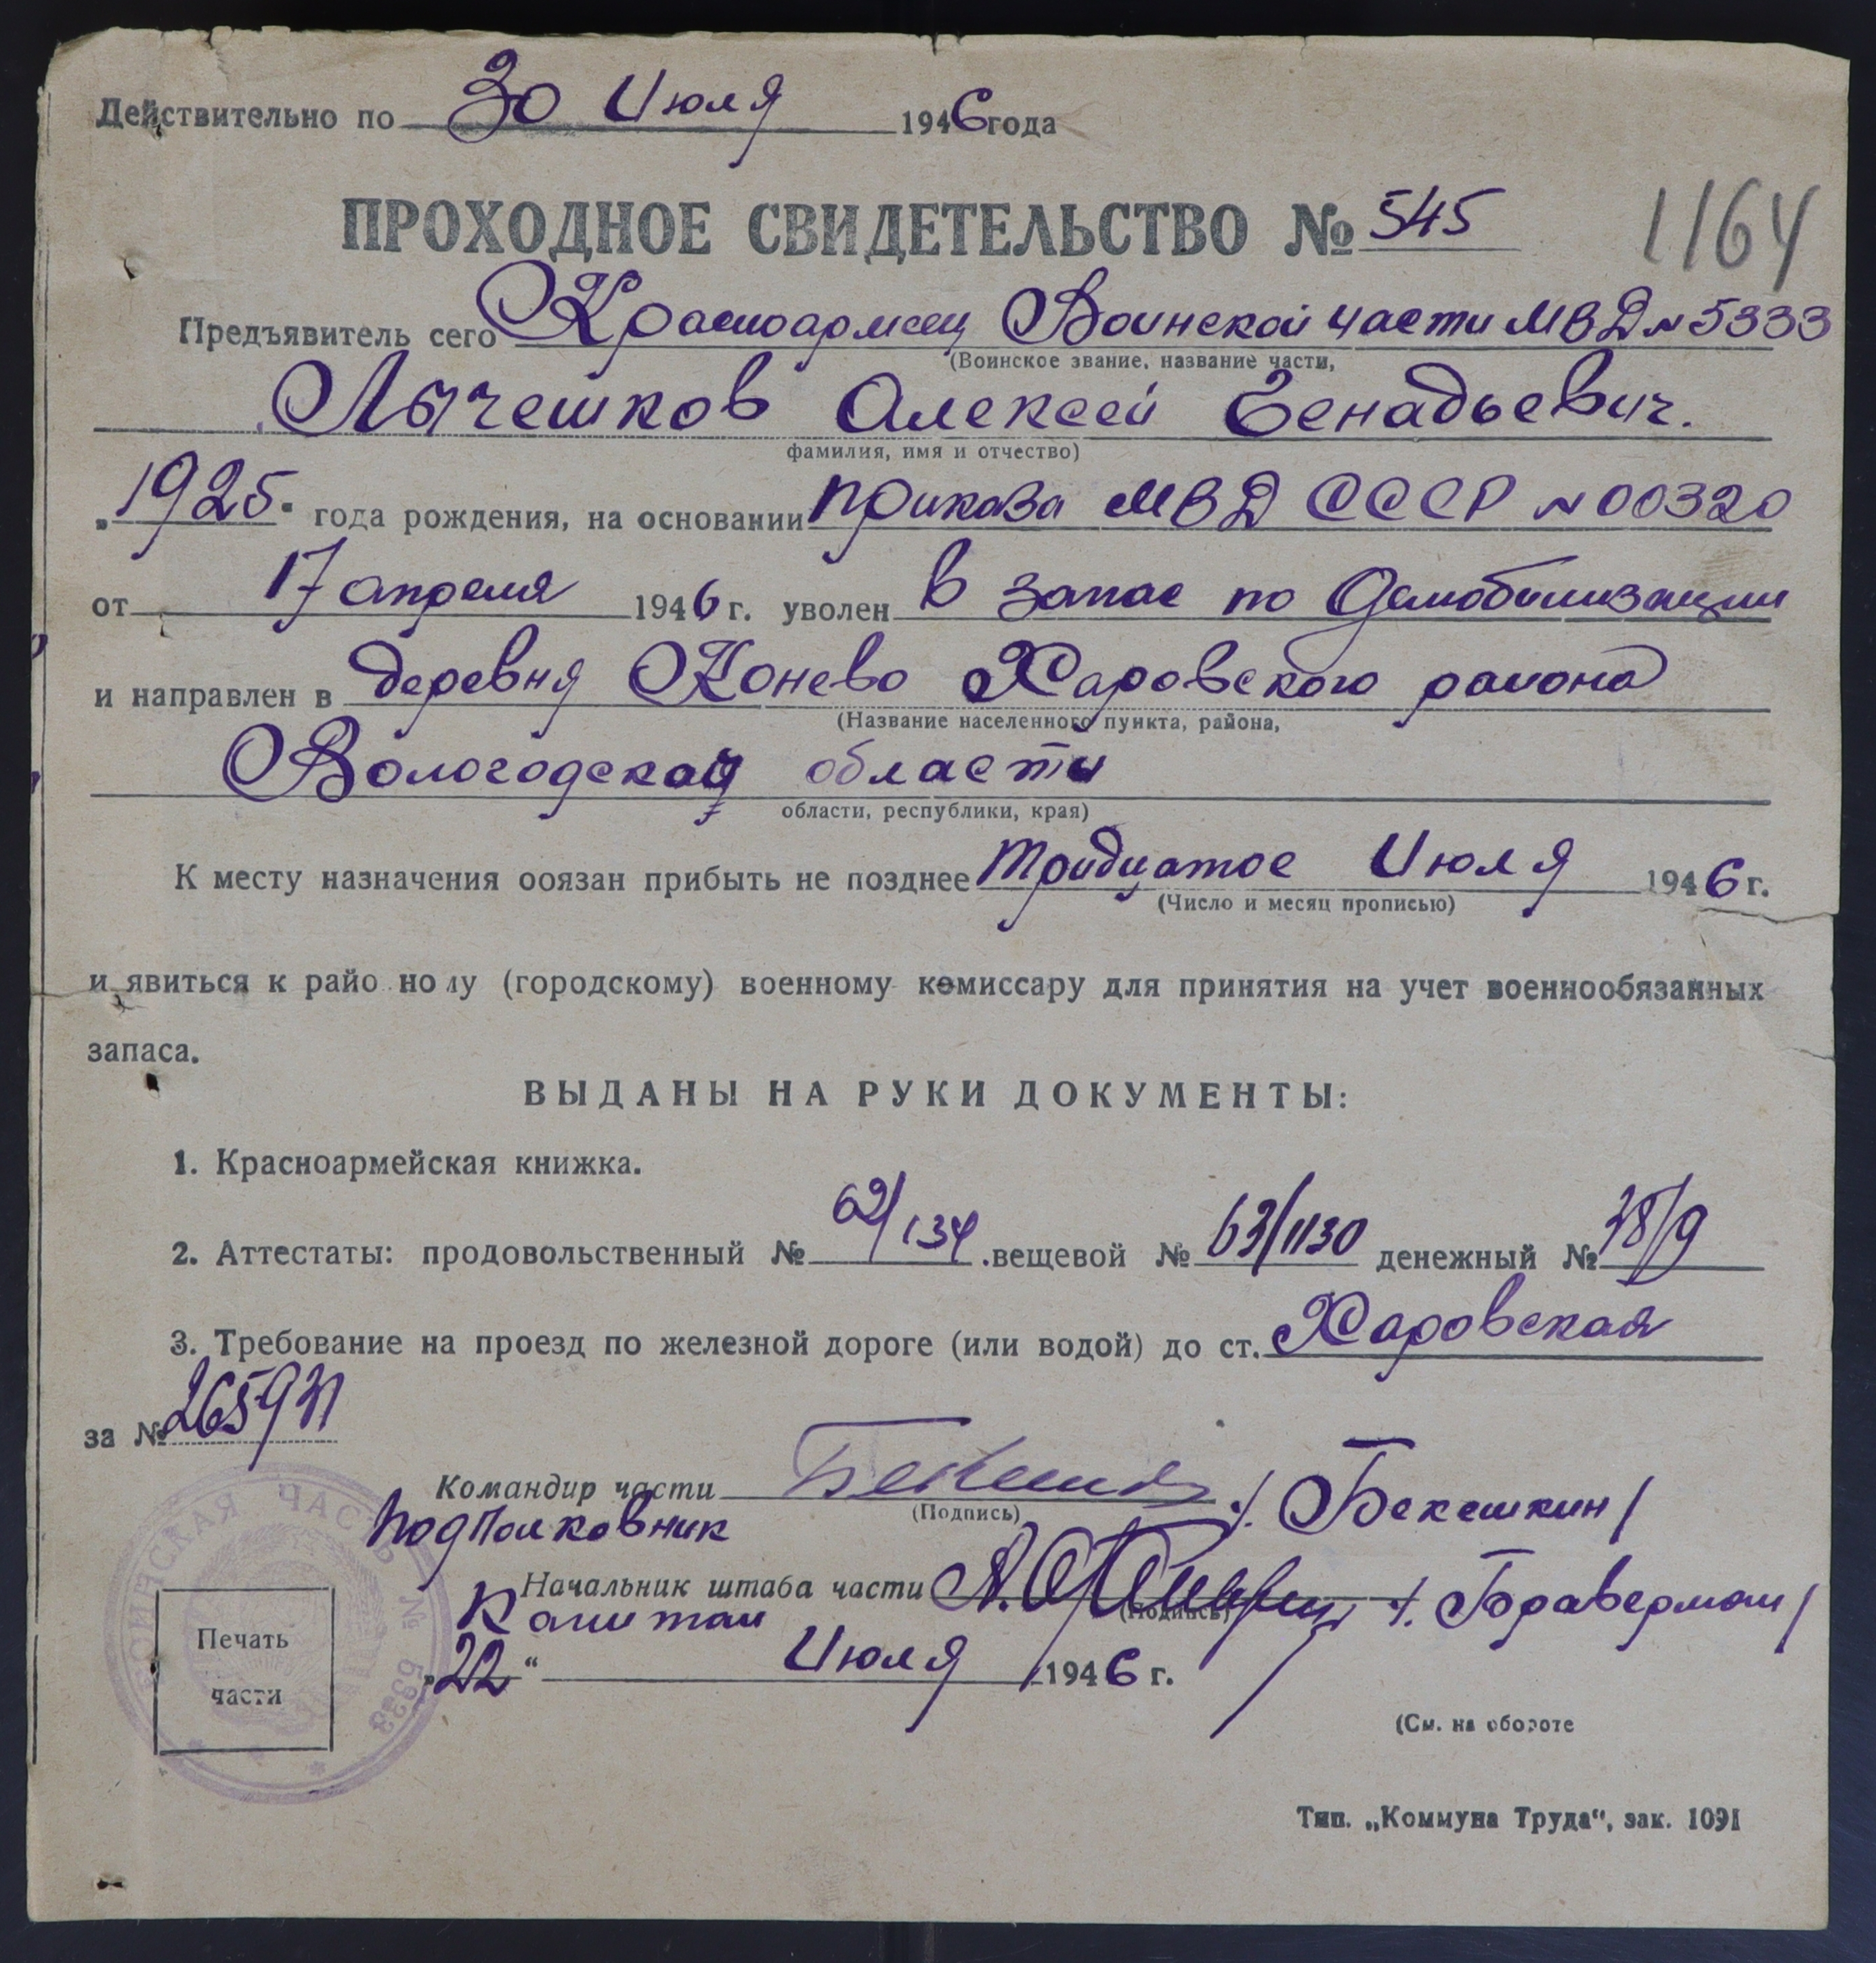 Действительно по 30 Июля 1946 года
ПРОХОДНОЕ СВИДЕТЕЛЬСТВО № 545
1164
Предъявитель сего Красноармеец Воинской части МВД № 5333
(Воинское звание, название части,
Лычешков Алексей Генадьевич.
фамилия, имя и отчество)
„1925" года рождения, на основании приказа МВД СССР № 00320
от 17 апреля 1946 г. уволен в запас по Демобилизации
и направлен в деревня Конево Харовского района
(Название населенного пункта, района,
Вологодской области
области, республики, края)
К месту назначения обязан прибыть не позднее тридцатое Июля 1946 г.
(Число и месяц прописью)
и явиться к райо ному (городскому) военному комиссару для принятия на учет военнообязанных
запаса.
ВЫДАНЫ НА РУКИ ДОКУМЕНТЫ:
1. Красноармейская книжка.
2. Аттестаты: продовольственный № 62/134 .вещевой № 63/1130 денежный № 38/9
3. Требование на проезд по железной дороге (или водой) до ст. Харовская
за № 265931
Командир части /. Бекешкин /
(Подпись)
Подполковник
Начальник штаба части /. Браверман /
(Подпись)
Капитан
„22“ Июля 1946 г.
ВОИНСКАЯ ЧАСТЬ № 5333
Печать
части
(См. на обороте
Тип. „Коммуна Труда“, зак. 1091